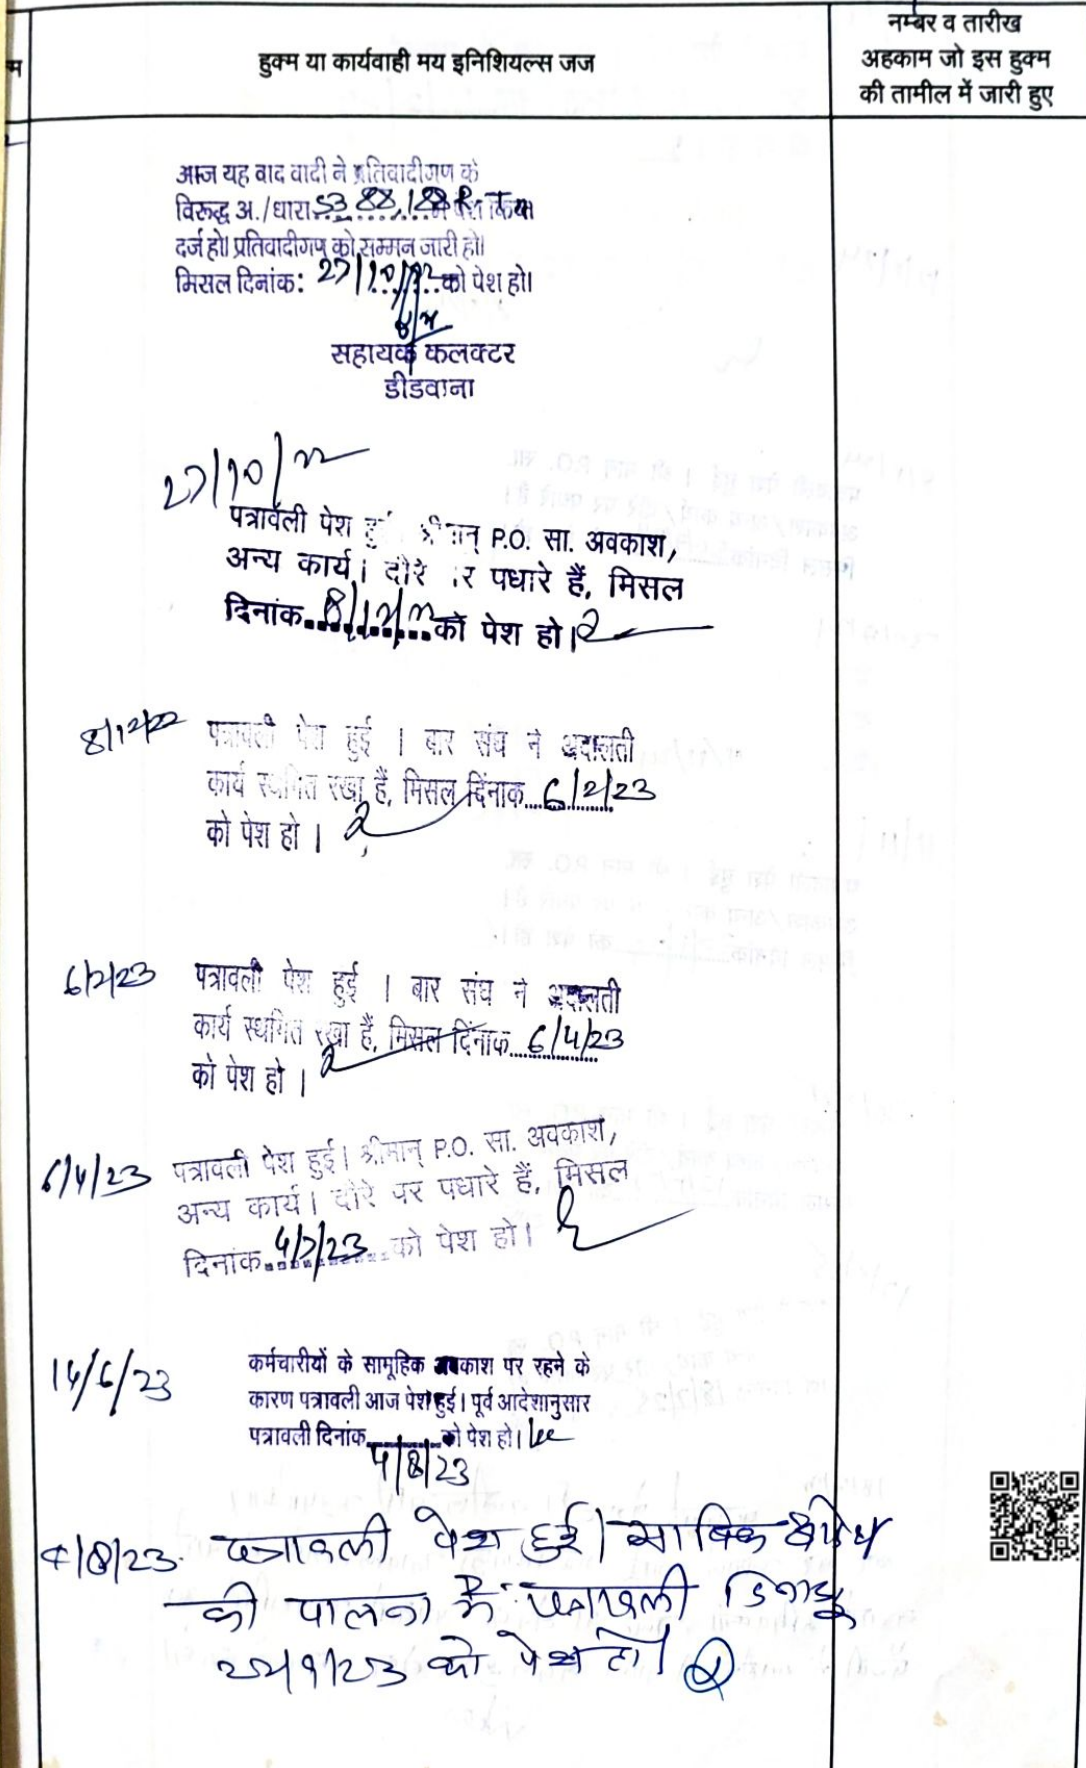 नम्बर व तारीख
हुक्म या कार्यवाही मय इनिशियल्स जज
अहकाम जो इस हुक्म
की तामील में जारी हुए
आज यह वाद वादी ने प्रतिवादीगण के
विरूद्ध अ./धारा 53 88,188 R.T. में पेश किया
दर्ज हो। प्रतिवादीगण को सम्मन जारी हो।
मिसल दिनांक: 27/10/22 को पेश हो।
सहायक कलक्टर
डीडवाना
27/10/22
पत्रावली पेश हुई श्रीमान् P.O. सा. अवकाश,
अन्य कार्य। दौरे पर पधारे हैं, मिसल
दिनांक 8/12/22 को पेश हो।
8/12/22 पत्रावली पेश हुई । बार संघ ने अदालती
कार्य स्थगित रखा हैं, मिसल दिंनाक 6/2/23
को पेश हो ।
6/2/23 पत्रावली पेश हुई । बार संघ ने अदालती
कार्य स्थगित रखा हैं, मिसल दिंनाक 6/4/23
को पेश हो ।
6/4/23 पत्रावली पेश हुई। श्रीमान् P.O. सा. अवकाश,
अन्य कार्य। दौरे पर पधारे हैं, मिसल
दिनांक 4/7/23 को पेश हो।
14/6/23 कर्मचारीयों के सामूहिक अवकाश पर रहने के
कारण पत्रावली आज पेश हुई। पूर्व आदेशानुसार
पत्रावली दिनांक को पेश हो।
4/8/23
4/8/23. पत्रावली पेश हुई। साबिक
की पालना में पत्रावली दिनांक
को पेश हो।